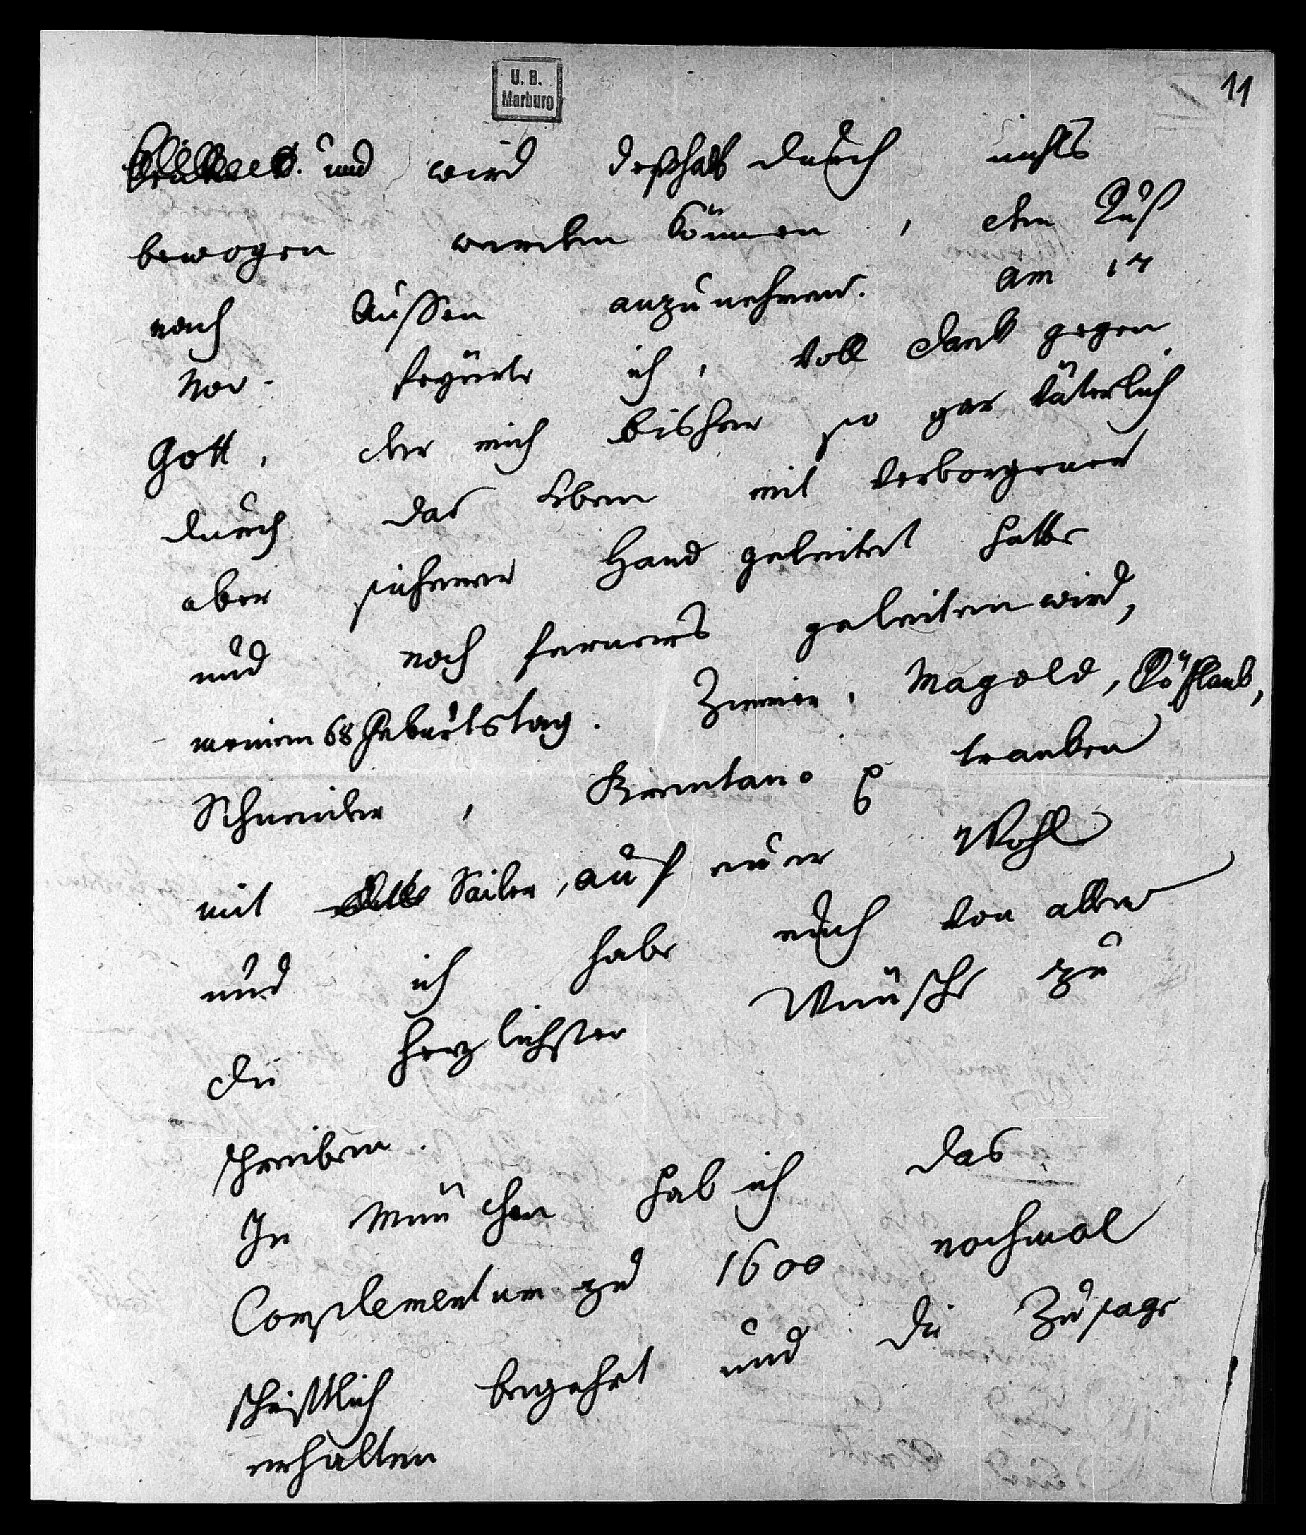 U. B.
Marburg
11
und wird deßhalb durch nichts
bewogen werden können, den Ruf
nach Aussen anzunehmen. Am 17
Nov. feyerte ich, voll Dank gegen
Gott, der mich bisher so gar väterlich
durch das Leben mit verborgener
aber sicherer Hand geleitet hatte
und noch ferners geleiten wird,
meinen 68 Geburtstag. Zimmer, Magold, Röschlaub,
Schneider, Brentano tranken
mit Sailer, auf euer Wohl
und ich habe euch von allen
die herzlichsten Wünsche zu
schreiben.
In München hab ich das
Complementum zu 1600 nochmal
schriftlich begehrt und die Zusage
erhalten